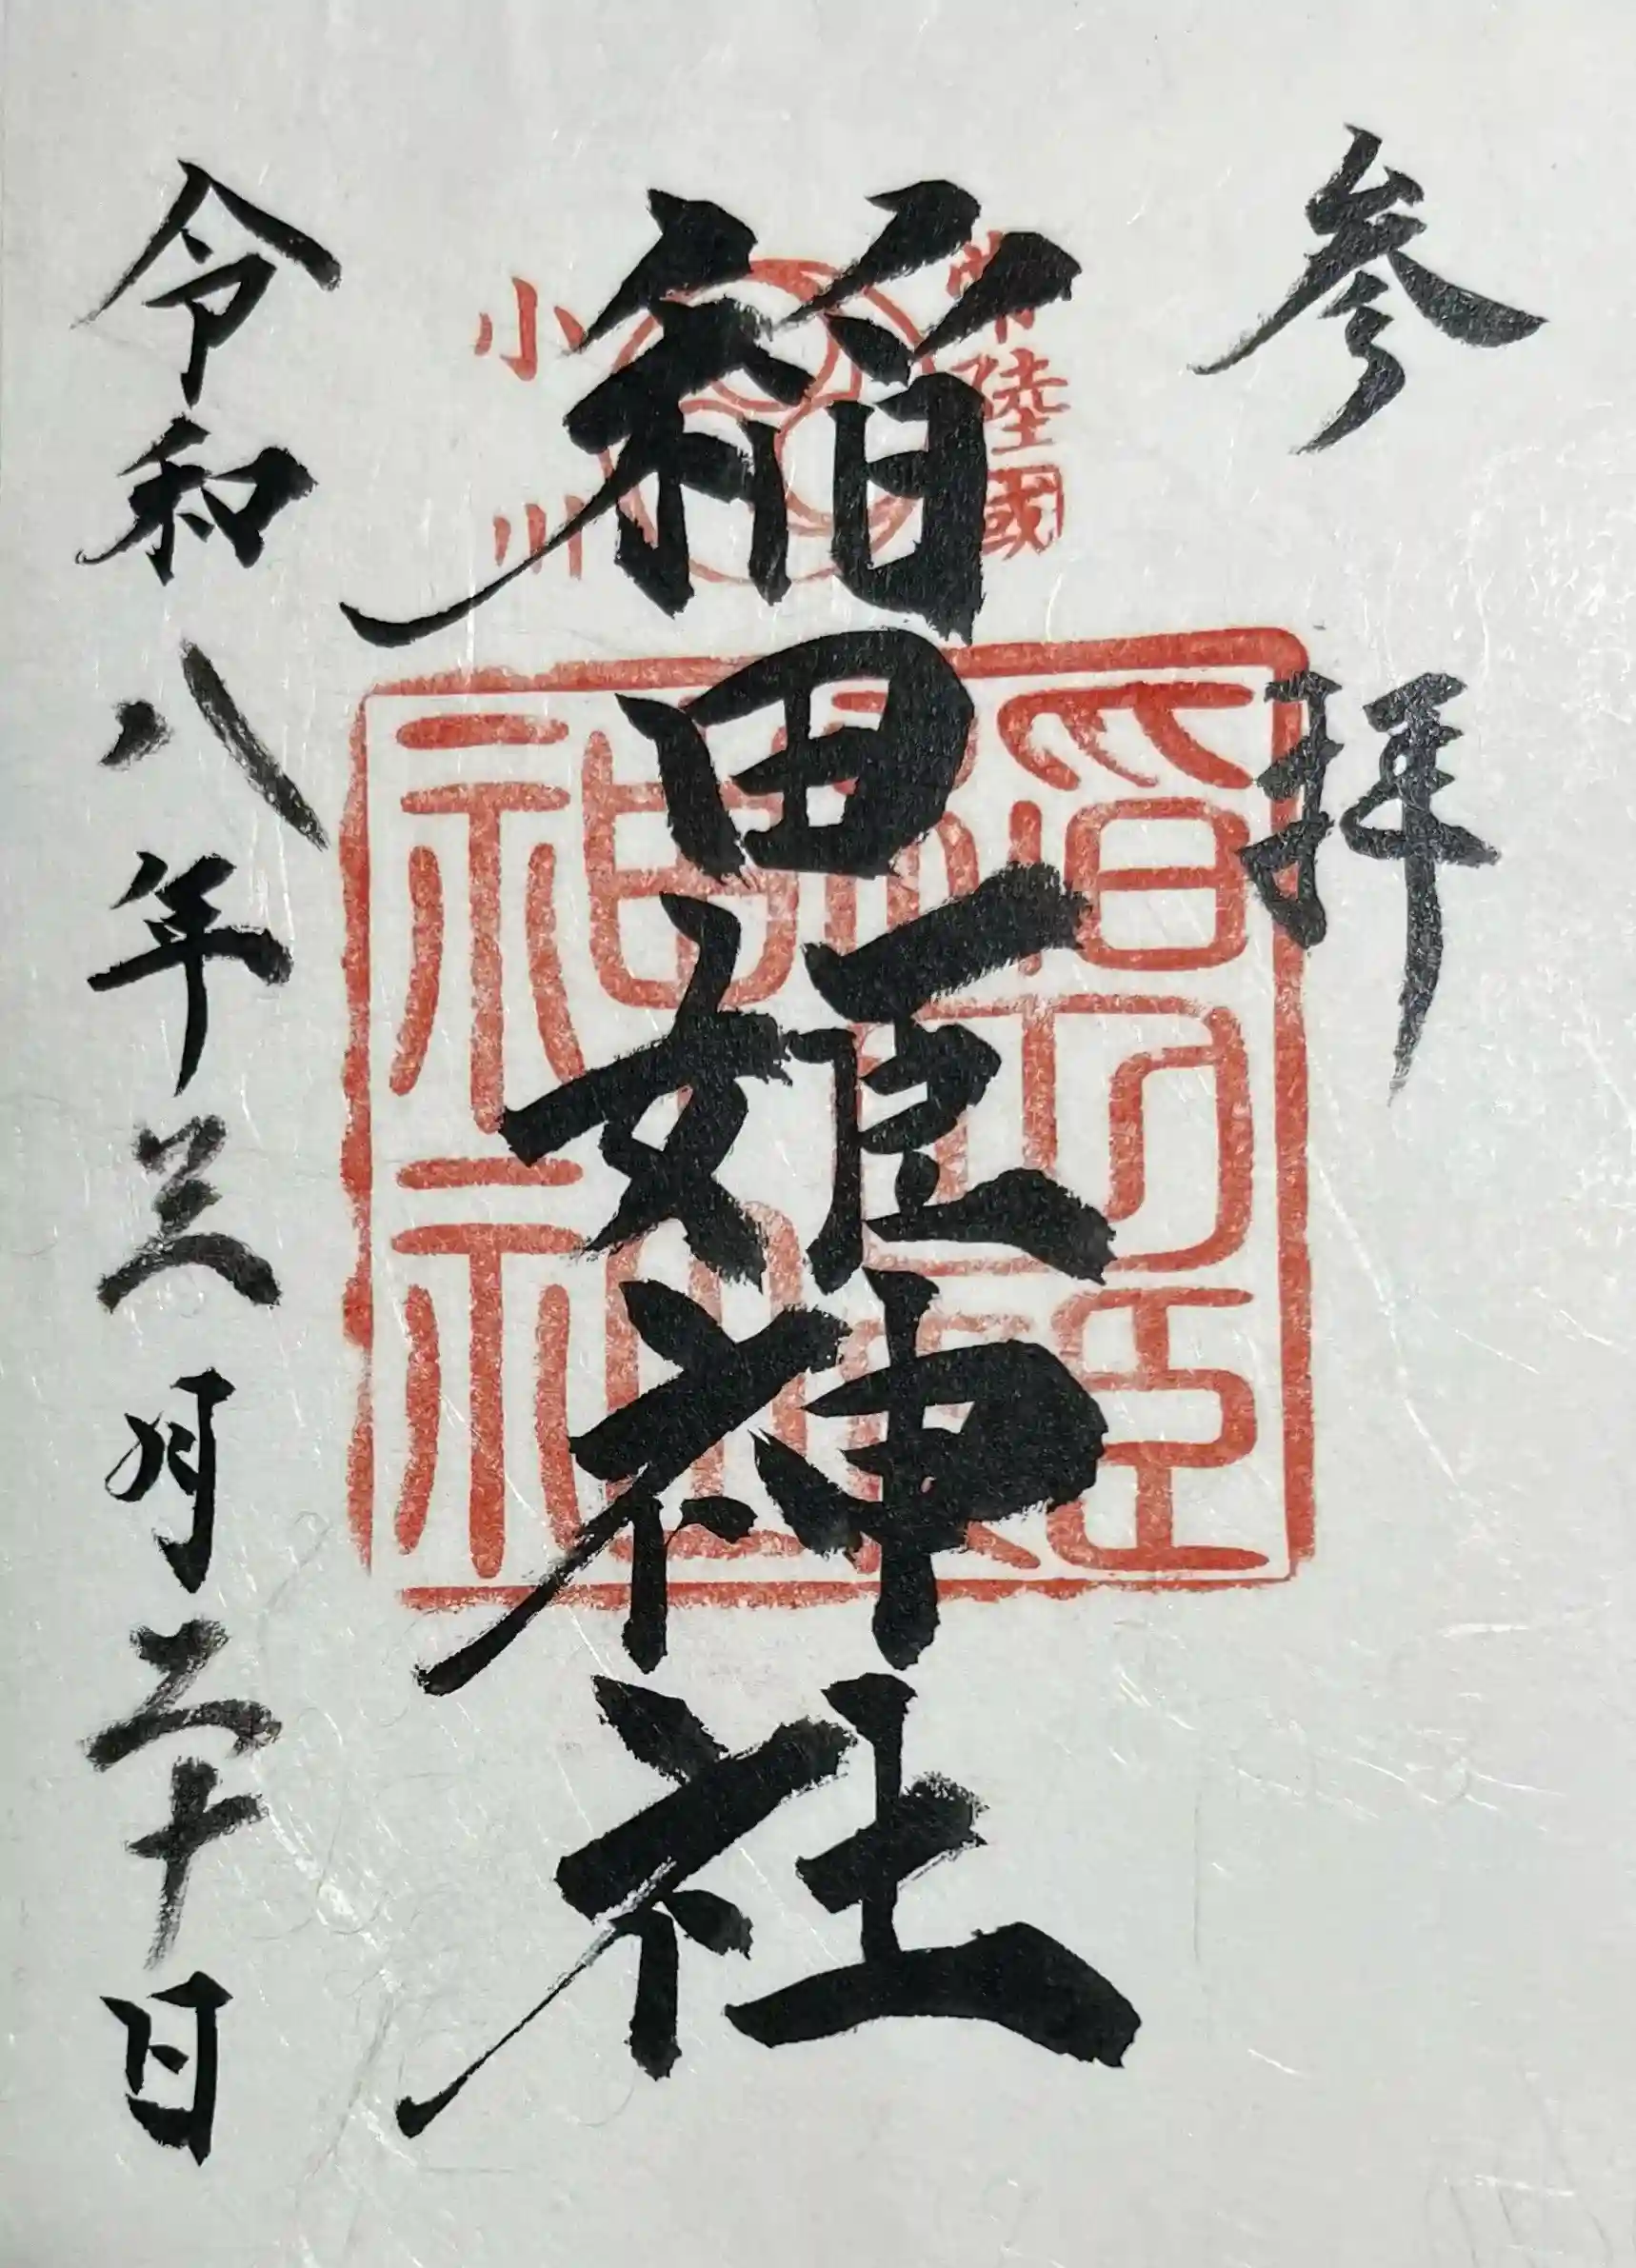 参拝
常陸國
稲田姫神社
小川
令和八年三月二十日